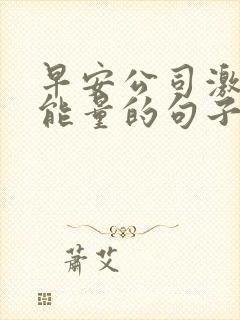 早安公司激
能量的句子
萧艾